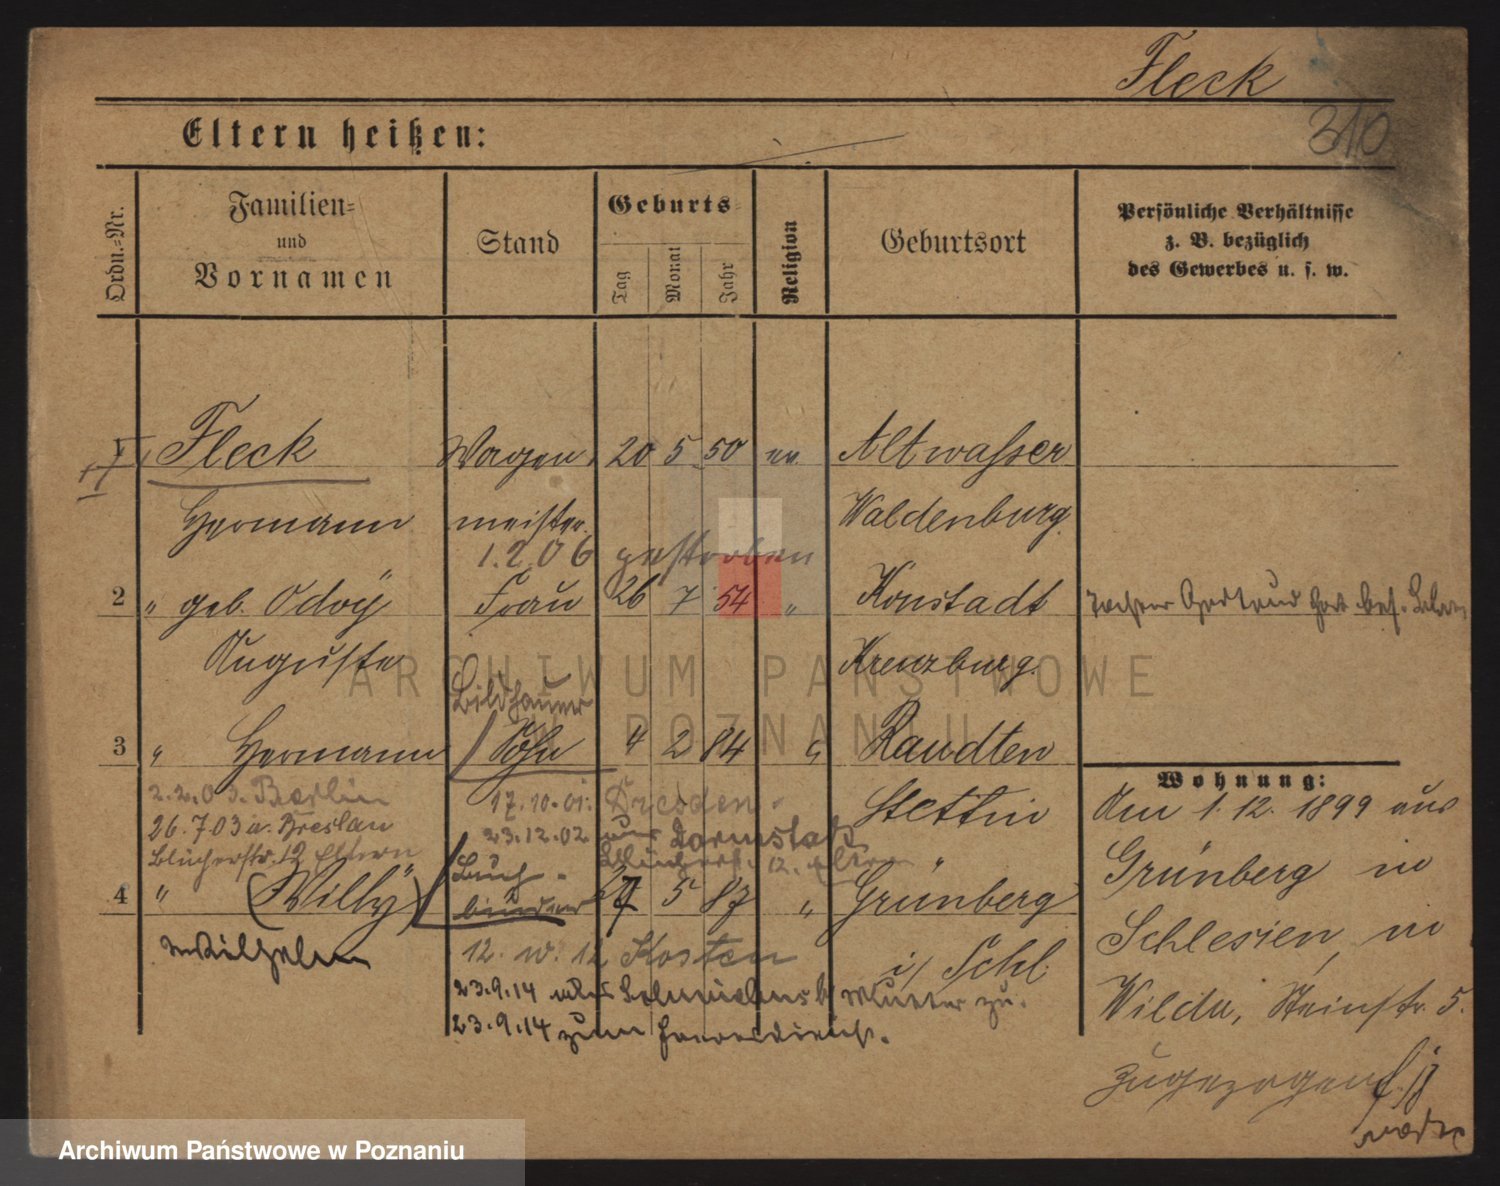 Fleck
310
Eltern heißen:
Ordn.=Nr.
Familien=
und
Vornamen
Stand
Geburts=
Tag
Monat
Jahr
Religion
Geburtsort
Persönliche Verhältnisse
z. B. bezüglich
des Gewerbes u. s. w.
1 Fleck Wagen 20 5 50 ev Altwasser
Hermann meister Waldenburg
1.2.06 gestorben
2 " geb. Odoÿ Frau 26 7 54 " Konstadt
Auguste Kreuzburg.
ARCHIWUM PAŃSTWOWE
W POZNANIU
Bildhauer
3 " Hermann Sohn 4 2 84 " Raudten
2.2.03. Berlin 17.10.01. Dresden Stettin
26.7.03 a. Breslau 23.12.02 aus Darmstadt
Blücherstr. 12 Eltern Blücherstr. 12. Eltern
Buch-
4 " (Willy) binder 27 5 87 " Grünberg
Wilhelm 12. w. 12 Kosten i/ Schl.
23.9.14 Mutter zu.
23.9.14 zum Heeresdienst.
Tochter Gertrud
Wohnung:
Am 1.12.1899 aus
Grünberg in
Schlesien, in
Wilda, Steinstr. 5.
zugezogen
Archiwum Państwowe w Poznaniu